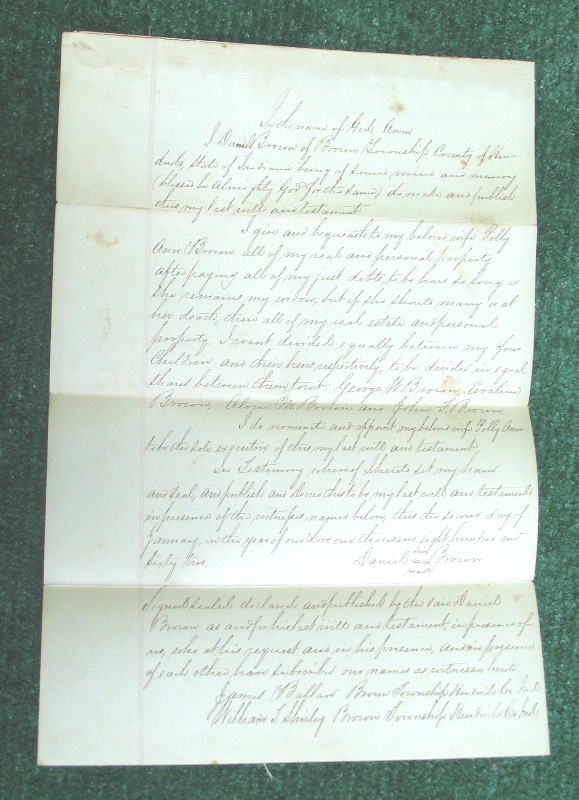 In the name of God Amen
I Daniel Brown of Brown Township County of Hen-
dricks, State of Indiana being of sound mind and memory
(blessed be Almighty God for the same) do make and publish
this my last will and testament
I give and bequeath to my belove wife Polly
Ann Brown all of my real and personal property
after paying all of my just debts, to be hers so long as
she remains my widow, but if she should marry or at
her death, then all of my real estate and personal
property, I want divided equally between my four
Children and their heirs respectively, to be divided in equal
shares between them, to wit: George W Brown, Eveline
Brown, Alvin M Brown and John Brown
I do nominate and appoint my belove wife Polly Ann
to be the sole executrix of this my last will and testament
In Testimony whereof I hereto set my hand
and seal, and publish and decree this to be my last will and testament
in presence of the witnesses named below, this the second day of
January, in the year of our Lord one thousand eight hundred and
sixty two.
Daniel his mark Brown
Signed sealed declared and published by the said Daniel
Brown as and for his last will and testament, in presence of
us, who at his request and in his presence, and in presence
of each other have subscribed our names as witnesses hereto
James Ballard Brown Township Hendricks Co Ind
William S Shirley Brown Township Hendricks Co Ind